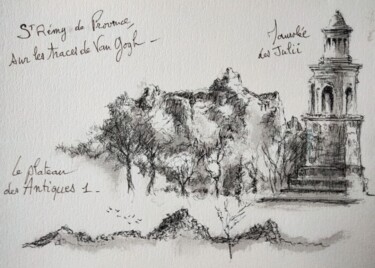 St Rémy de Provence
sur les traces de Van Gogh -
Mausolée
des Julii
Le plateau
des Antiques 1 -